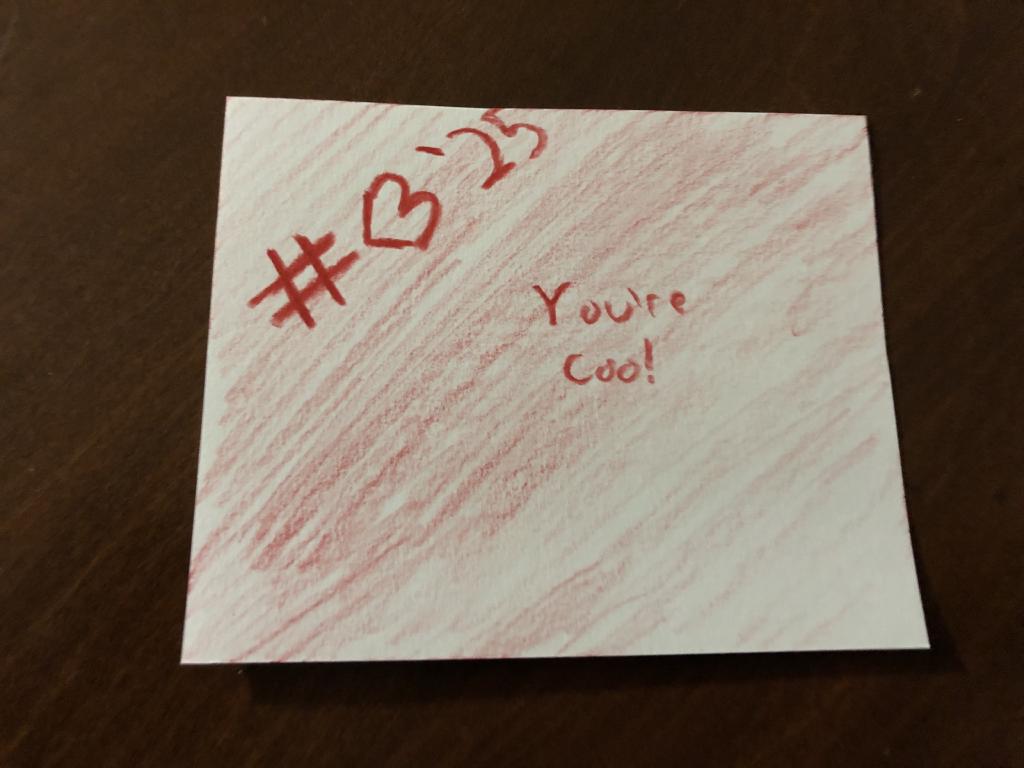 #♡'25
You're
Coo!